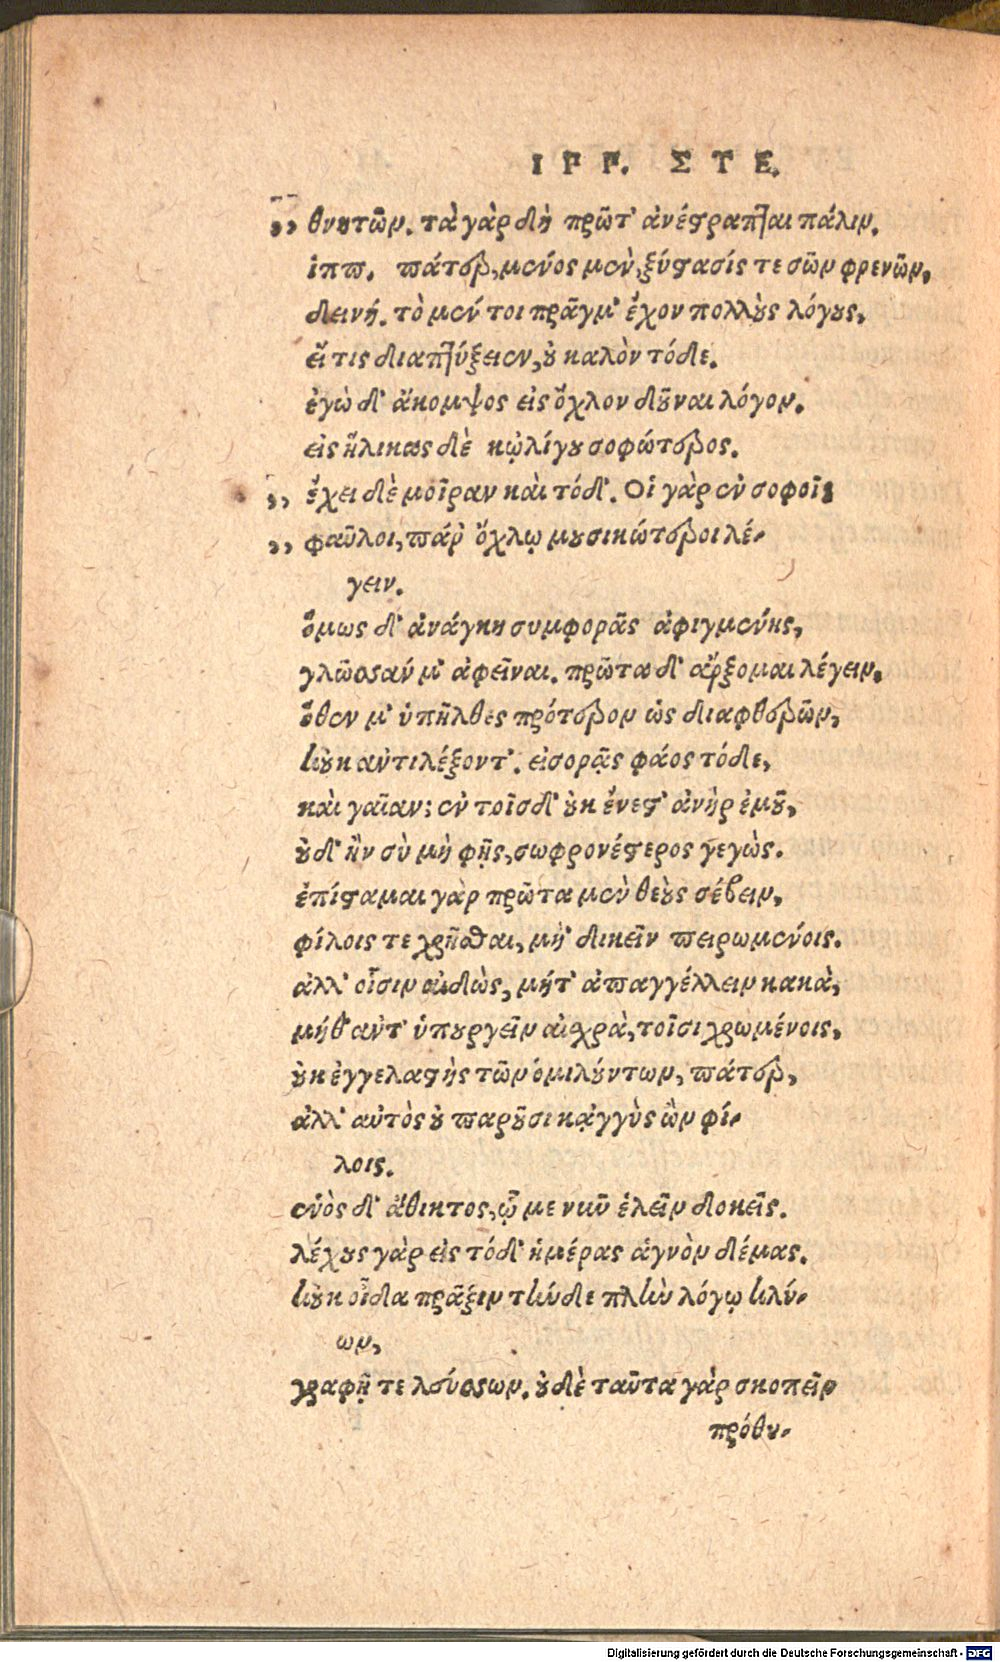 ΙΡΡ. ΣΤΕ.
,, θνητῶν. τὰ γὰρ δὴ πρῶτ' ἀνέστραπται πάλιν.
ἱππ. πάτερ, μένος μὲν, ξύστασίς τε σῶν φρενῶν,
δεινή. τὸ μέν τοι πρᾶγμ' ἔχον πολλοὺς λόγους,
εἴ τις διαπτύξειεν, οὐ καλὸν τόδε.
ἐγὼ δ' ἄκομψος εἰς ὄχλον δοῦναι λόγον.
εἰς ἥλικας δὲ κᾠλίγου σοφώτερος.
,, ἔχει δὲ μοῖραν καὶ τόδ'. Οἱ γὰρ ἐν σοφοῖς
,, φαῦλοι, παρ' ὄχλῳ μουσικώτεροι λέ-
γειν.
ὅμως δ' ἀνάγκη συμφορᾶς ἀφιγμένης,
γλῶσσάν μ' ἀφεῖναι. πρῶτα δ' ἄρξομαι λέγειν,
ὅθεν μ' ὑπῆλθες πρότερον ὡς διαφθερῶν,
κοὐκ ἀντιλέξοντ'. εἰσορᾷς φάος τόδε,
καὶ γαῖαν; ἐν τοῖσδ' οὐκ ἔνεστ' ἀνὴρ ἐμοῦ,
οὐδ' ἢν σὺ μὴ φῇς, σωφρονέστερος γεγώς.
ἐπίσταμαι γὰρ πρῶτα μὲν θεοὺς σέβειν,
φίλοις τε χρῆσθαι, μὴ 'δικεῖν πειρωμένοις.
ἀλλ' οἷσιν αἰδὼς, μήτ' ἀπαγγέλλειν κακὰ,
μήθ' αὖτ' ὑπουργεῖν αἰσχρὰ, τοῖσι χρωμένοις,
οὐκ ἐγγελαστὴς τῶν ὁμιλούντων, πάτερ,
ἀλλ' αὐτὸς οὐ παροῦσι κἀγγὺς ὢν φί-
λοις.
ἑνὸς δ' ἄθικτος, ᾧ με νῦν ἑλεῖν δοκεῖς.
λέχους γὰρ εἰς τόδ' ἡμέρας ἁγνὸν δέμας.
κοὐκ οἶδα πρᾶξιν τήνδε πλὴν λόγῳ κλύ-
ων,
γραφῇ τε λεύσσων. οὐδὲ ταῦτα γὰρ σκοπεῖν
πρόθυ-
Digitalisierung gefördert durch die Deutsche Forschungsgemeinschaft - DFG